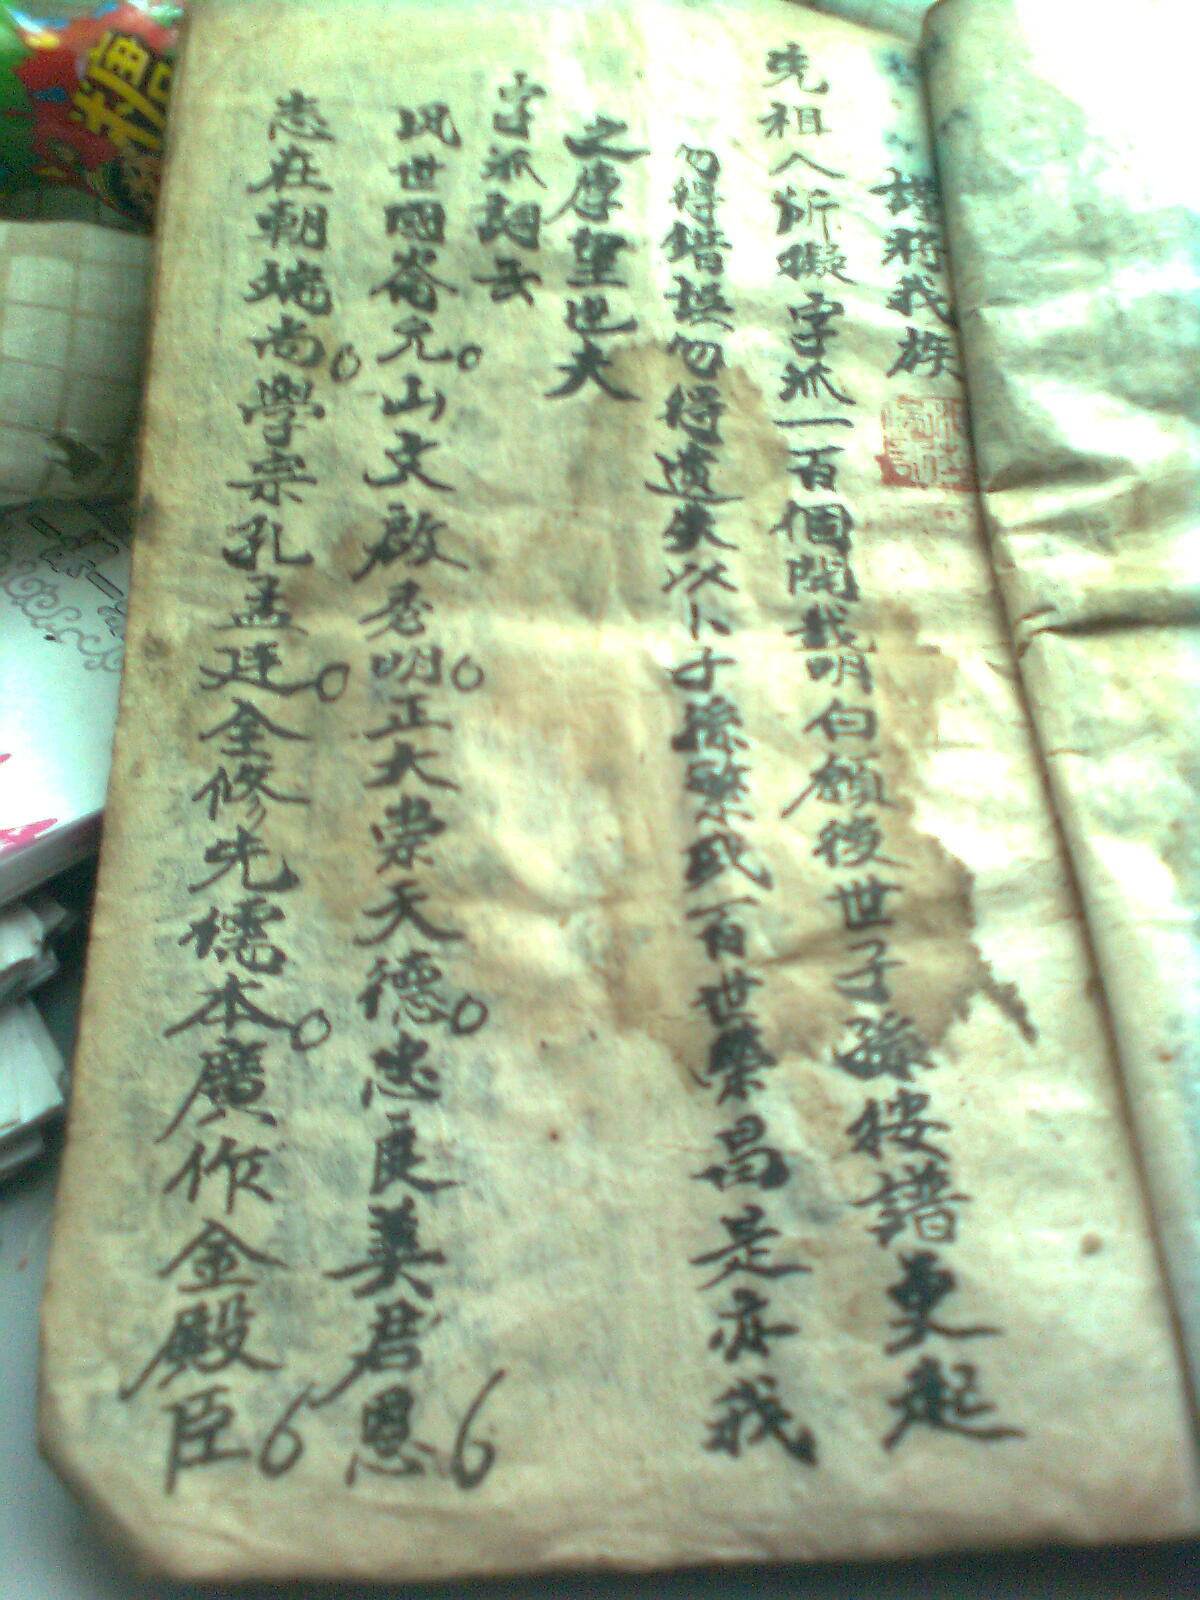 謹將我族
先祖人所擬字派一百個開載明白願後世子孫按譜更起
勿得錯誤勿得遺失以卜子孫繁盛一百世榮昌是亦我
之厚望也夫
字派詞云
汎世國崙元山文啟明正大崇天德忠良美君恩
志在朝端尚學宗孔孟廷全修先儒本廣作金殿臣